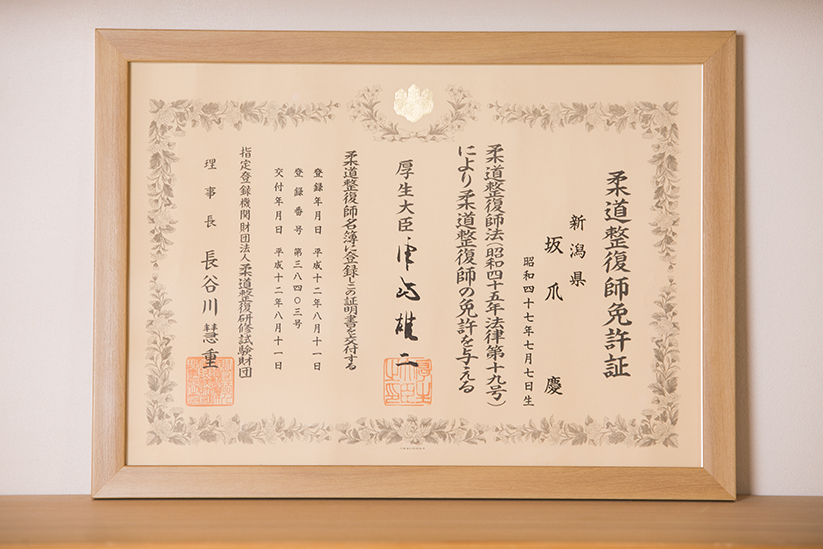 柔道整復師免許証
新潟県
坂爪 慶
昭和四十七年七月七日生
柔道整復師法(昭和四十五年法律第十九号)
により柔道整復師の免許を与える
厚生大臣 津島雄二
柔道整復師名簿に登録しこの証明書を交付する
登録年月日 平成十二年八月十一日
登録番号 第三八四〇三号
交付年月日 平成十二年八月十一日
指定登録機関財団法人柔道整復研修試験財団
理事長 長谷川慧重